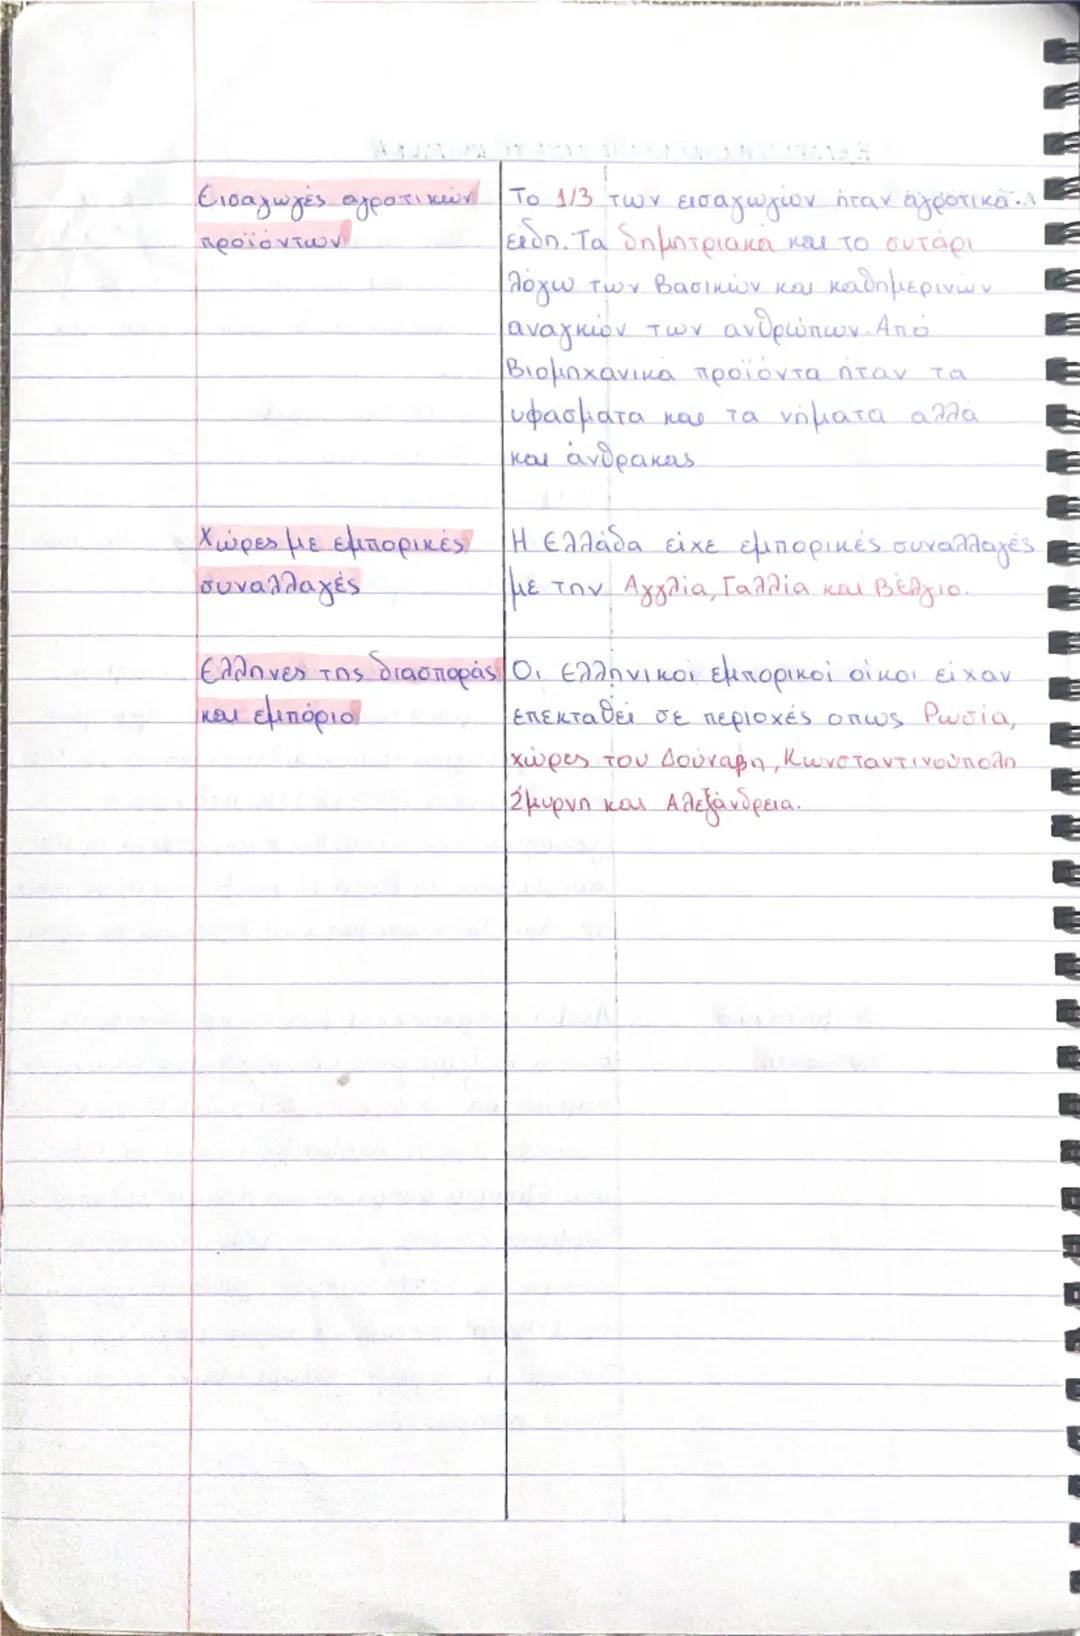 Εισαγωγές αγροτικών
προϊόντων
Το 1/3 των εισαγωγιον ήταν αγροτικά
είδη. Τα δημητριακά και το σιτάρι
λόγω των βασικών και καθημερινών
αναγκών των ανθρώπων. Από
βιομηχανικά προϊόντα ήταν τα
υφάσματα και τα νήματα αλλά
και άνθρακας
Χώρες με εμπορικές
συναλλαγές
Η Ελλάδα είχε εμπορικές συναλλαγές
με την Αγγλία, Γαλλία και Βέλγιο.
Ελληνες της διασποράς
και εμπόριο
Οι Ελληνικοί εμπορικοί οίκοι είχαν
επεκταθεί σε περιοχές οπως Ρωσία,
χώρες του Δούναβη, Κωνσταντινούπολη
Σμυρνη και Αλεξάνδρεια.